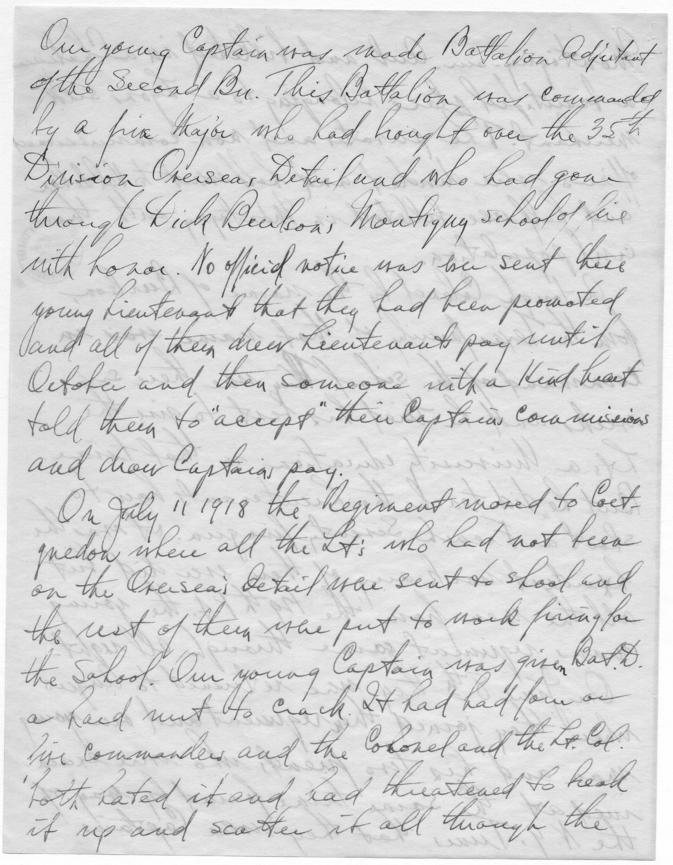 Our young Captain was made Battalion Adjutant
of the Second Bn. This Battalion was commanded
by a fine Major who had brought over the 35th
Division Overseas Detail and who had gone
through Dick Burleson's Montigny school of fire
with honor. No official notice was ever sent these
young Lieutenants that they had been promoted
and all of them drew Lieutenants pay until
October and then someone with a kind heart
told them to "accept" their Captains commissions
and draw Captains pay.
On July 11 1918 the Regiment moved to Coet-
quedon where all the Lts who had not been
on the Overseas Detail were sent to shool and
the rest of them were put to work firing for
the School. Our young Captain was given Bat. D.
a hard nut to crack. It had had four or
five commanders and the Colonel and the Lt. Col.
both hated it and had threatened to break
it up and scatter it all through the